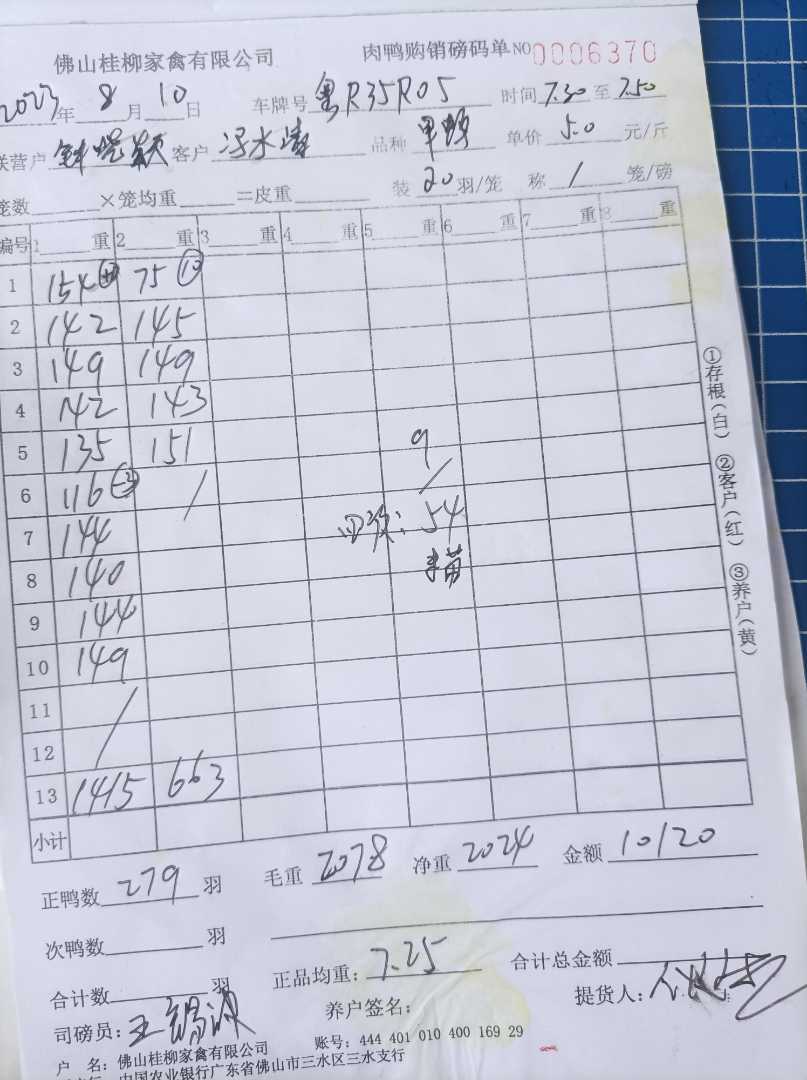 佛山桂柳家禽有限公司 肉鸭购销磅码单 NO 0006370
2023年 8月 10日 车牌号 粤R35R05 时间 7.30 至 7.50
联营户 客户 冯水 品种 单价 5.0 元/斤
笼数 ×笼均重 =皮重 装 20 羽/笼 称 1 笼/磅
编号 1 重 2 重 3 重 4 重 5 重 6 重 7 重 8 重
1 154 75 ⑩
2 142 145
3 149 149
4 142 143
5 135 151 9
6 116 /
7 144 : 54
8 140
9 144
10 149
11 /
12
13 1415 663
小计
正鸭数 279 羽 毛重 2078 净重 2024 金额 10120
次鸭数 羽
合计数 羽 正品均重: 7.25 合计总金额
司磅员: 王锡波 养户签名: 提货人:
户 名: 佛山桂柳家禽有限公司 账号: 444 401 010 400 169 29
中国农业银行广东省佛山市三水区三水支行
①存根(白) ②客户(红) ③养户(黄)